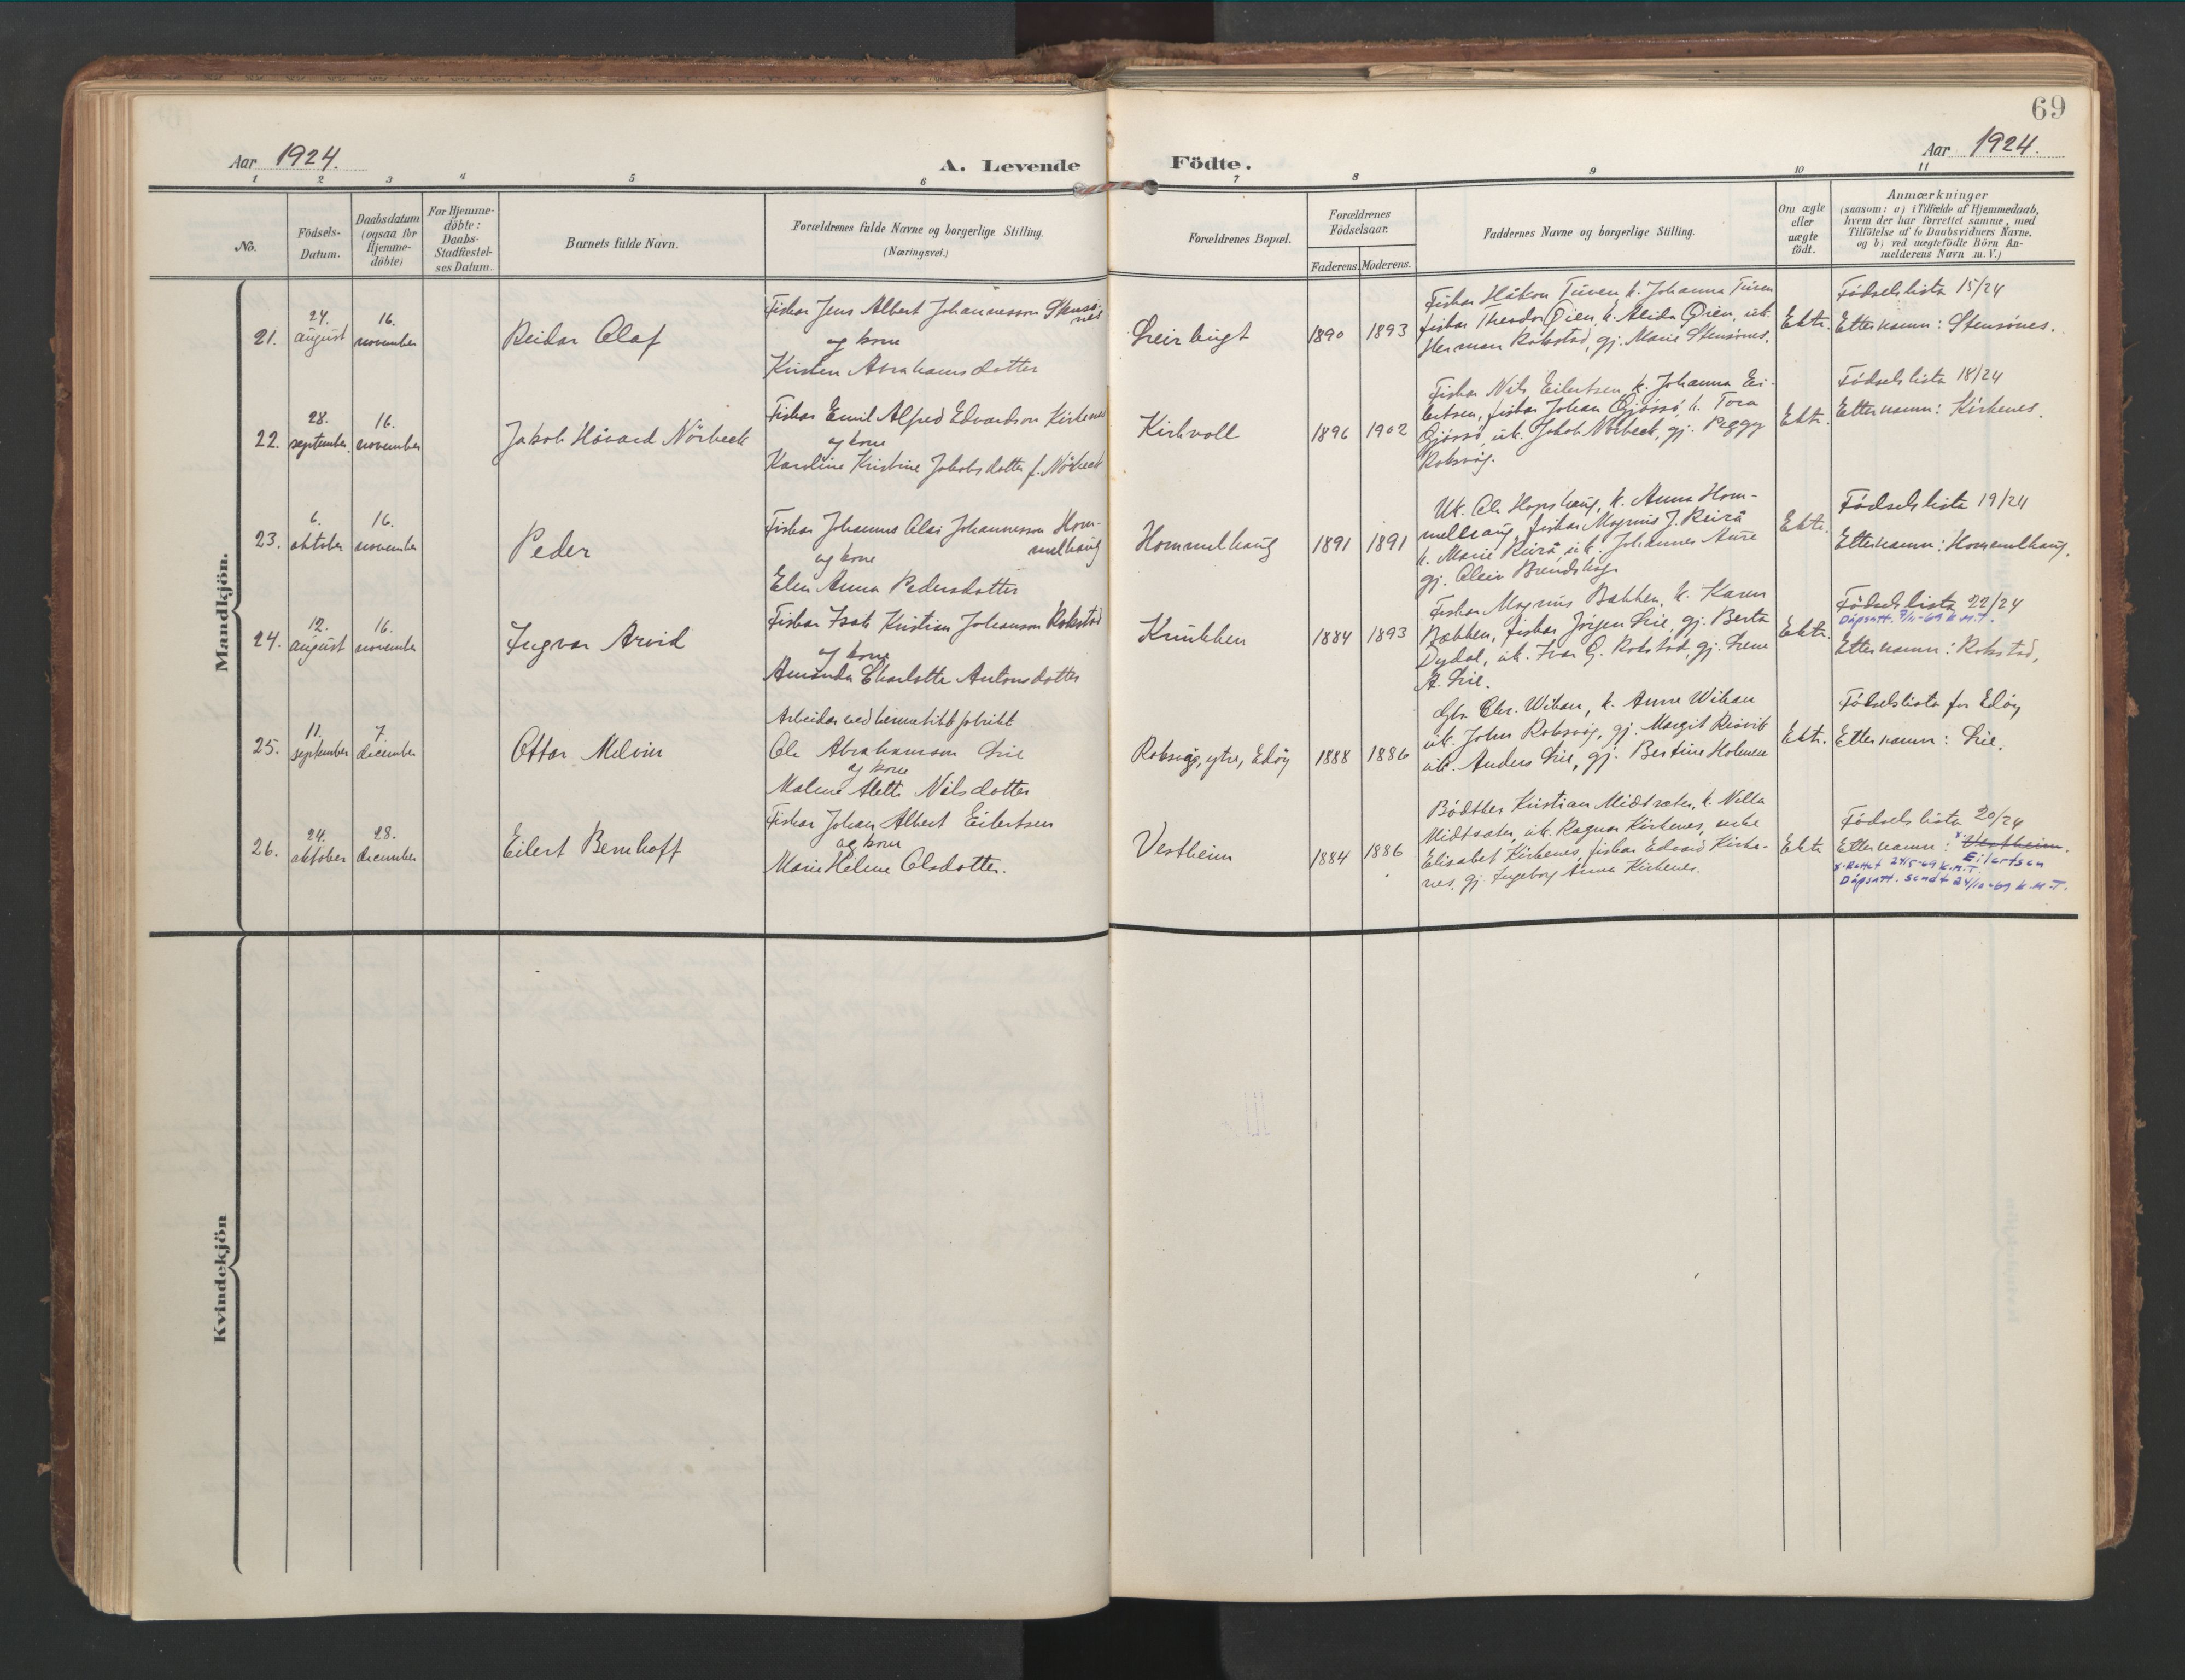 69
Aar 1924.
A. Levende Födte.
Aar 1924.
1 2 3 4 5 6 7 8 9 10 11
No.
Födsels-
Datum.
Daabsdatum
(ogsaa for
Hjemme-
döbte)
For Hjemme-
döbte:
Daabs-
Stadfæstel-
ses Datum.
Barnets fulde Navn.
Forældrenes fulde Navne og borgerlige Stilling.
(Næringsvei.)
Forældrenes Bopæl.
Forældrenes
Födselsaar.
Faderens. Moderens.
Faddernes Navne og borgerlige Stilling.
Om ægte
eller
uægte
födt.
Anmærkninger
(saasom: a) i Tilfælde af Hjemmedaab,
hvem der har forrettet samme, med
Tilföielse af to Daabsvidners Navne,
og b) ved uægtefödte Börn An-
melderens Navn m. V.)
Mandkjön.
21.
24.
august
16.
november
Reidar Olaf
Fiskar Jens Albert Johannesson Stensö-
nes
og kone
Kristen Abrahamsdotter
Leirbugt
1890
1893
Fiskar Håkon Tuven k. Johanna Tuven
fiskar Theodor Öien, k. Alida Öien, uk.
Herman Rokstad, gj. Marie Stensönes.
Ekte.
Födselslista 15/24
Etternamn: Stensönes.
22.
28.
september
16.
november
Jakob Håvard Nörbeck
Fiskar Emil Alfred Edvardson Kirkenes
og kone
Karoline Kristine Jakobsdotter f. Nörbeck
Kirkvoll
1896
1902
Fiskar Nils Eilertsen, k. Johanna Ei-
lertsen, fiskar Johan Gjössö, k. Tora
Gjössö, uk. Jakob Nörbeck, gj. Peggy
Roksvåg.
Ekte.
Födselslista 18/24
Etternamn: Kirkenes.
23.
6.
oktober
16.
november
Peder
Fiskar Johannes Olai Johannesson Hom-
melhaug
og kone
Elen Anna Pedersdotter
Hommelhaug
1891
1891
Uk. Ole Hopshaug, k. Anna Hom-
melhaug, fiskar Magnus J. Reirå
k. Marie Reirå, uk. Johannes Aure
gj. Oleiv Brendskag.
Ekte.
Födselslista 19/24
Etternamn: Hommelhaug.
24.
12.
august
16.
november
Ingvar Arvid
Fiskar Isak Kristian Johanson Rokstad
og kone
Amanda Charlotte Antonsdotter
Knubben
1884
1893
Fiskar Magnus Bakken, k. Karen
Bakken, fiskar Jörgen Lie, gj. Berta
Dydal, uk. Ivar G. Rokstad, gj. Lene
A. Lie.
Ekte.
Födselslista 22/24
Dåpsatt. 7/11-69 K.M.T.
Etternamn: Rokstad.
25.
11.
september
7.
december
Ottar Melvin
Arbeidar ved hermetikkfabrikk
Ole Abrahamson Lie
og kone
Malene Alette Nilsdotter
Roksvåg, ytre, Edöy
1888
1886
Gbr. Chr. Wikan, k. Anne Wikan
uk. John Roksvåg, gj. Margit Reirvik
uk. Anders Lie, gj. Bertine Holmen
Ekte.
Födselslista for Edöy
Etternamn: Lie.
26.
24.
oktober
28.
december
Eilert Bernhoff
Fiskar Johan Albert Eilertsen
og kone
Marie Helene Olsdotter.
Vestheim
1884
1886
Bödtker Kristian Midtsæter, k. Nella
Midtsæter, uk. Ragnar Kirkenes, enke
Elisabet Kirkenes, fiskar Edvard Kirke-
nes, gj. Ingeborg Anna Kirkenes.
Ekte
Födselslista 20/24
Etternamn: x. Vestheim.
Eilertsen
x. Rettet 24/5-69 K.M.T.
Dåpsatt. sendt 24/10-69 K.M.T.
Kvindekjön